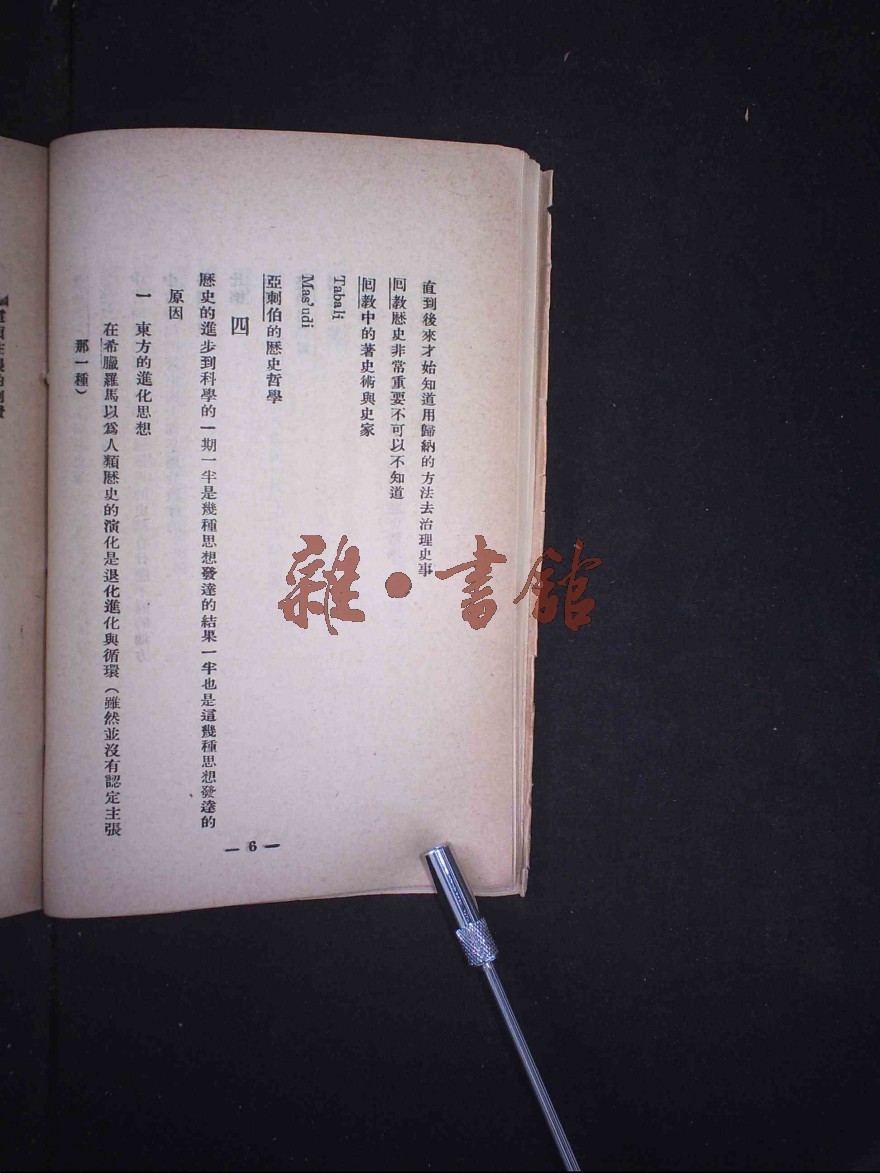 直到後來才始知道用歸納的方法去治理史事
回教歷史非常重要不可以不知道
回教中的著史術與史家
Tabali
Mas'udi
亞剌伯的歷史哲學
四
歷史的進步到科學的一期一半是幾種思想發達的結果一半也是這幾種思想發達的
原因
一 東方的進化思想
在希臘羅馬以爲人類歷史的演化是退化進化與循環（雖然並沒有認定主張
那一種）
— 6 —
雜·書館